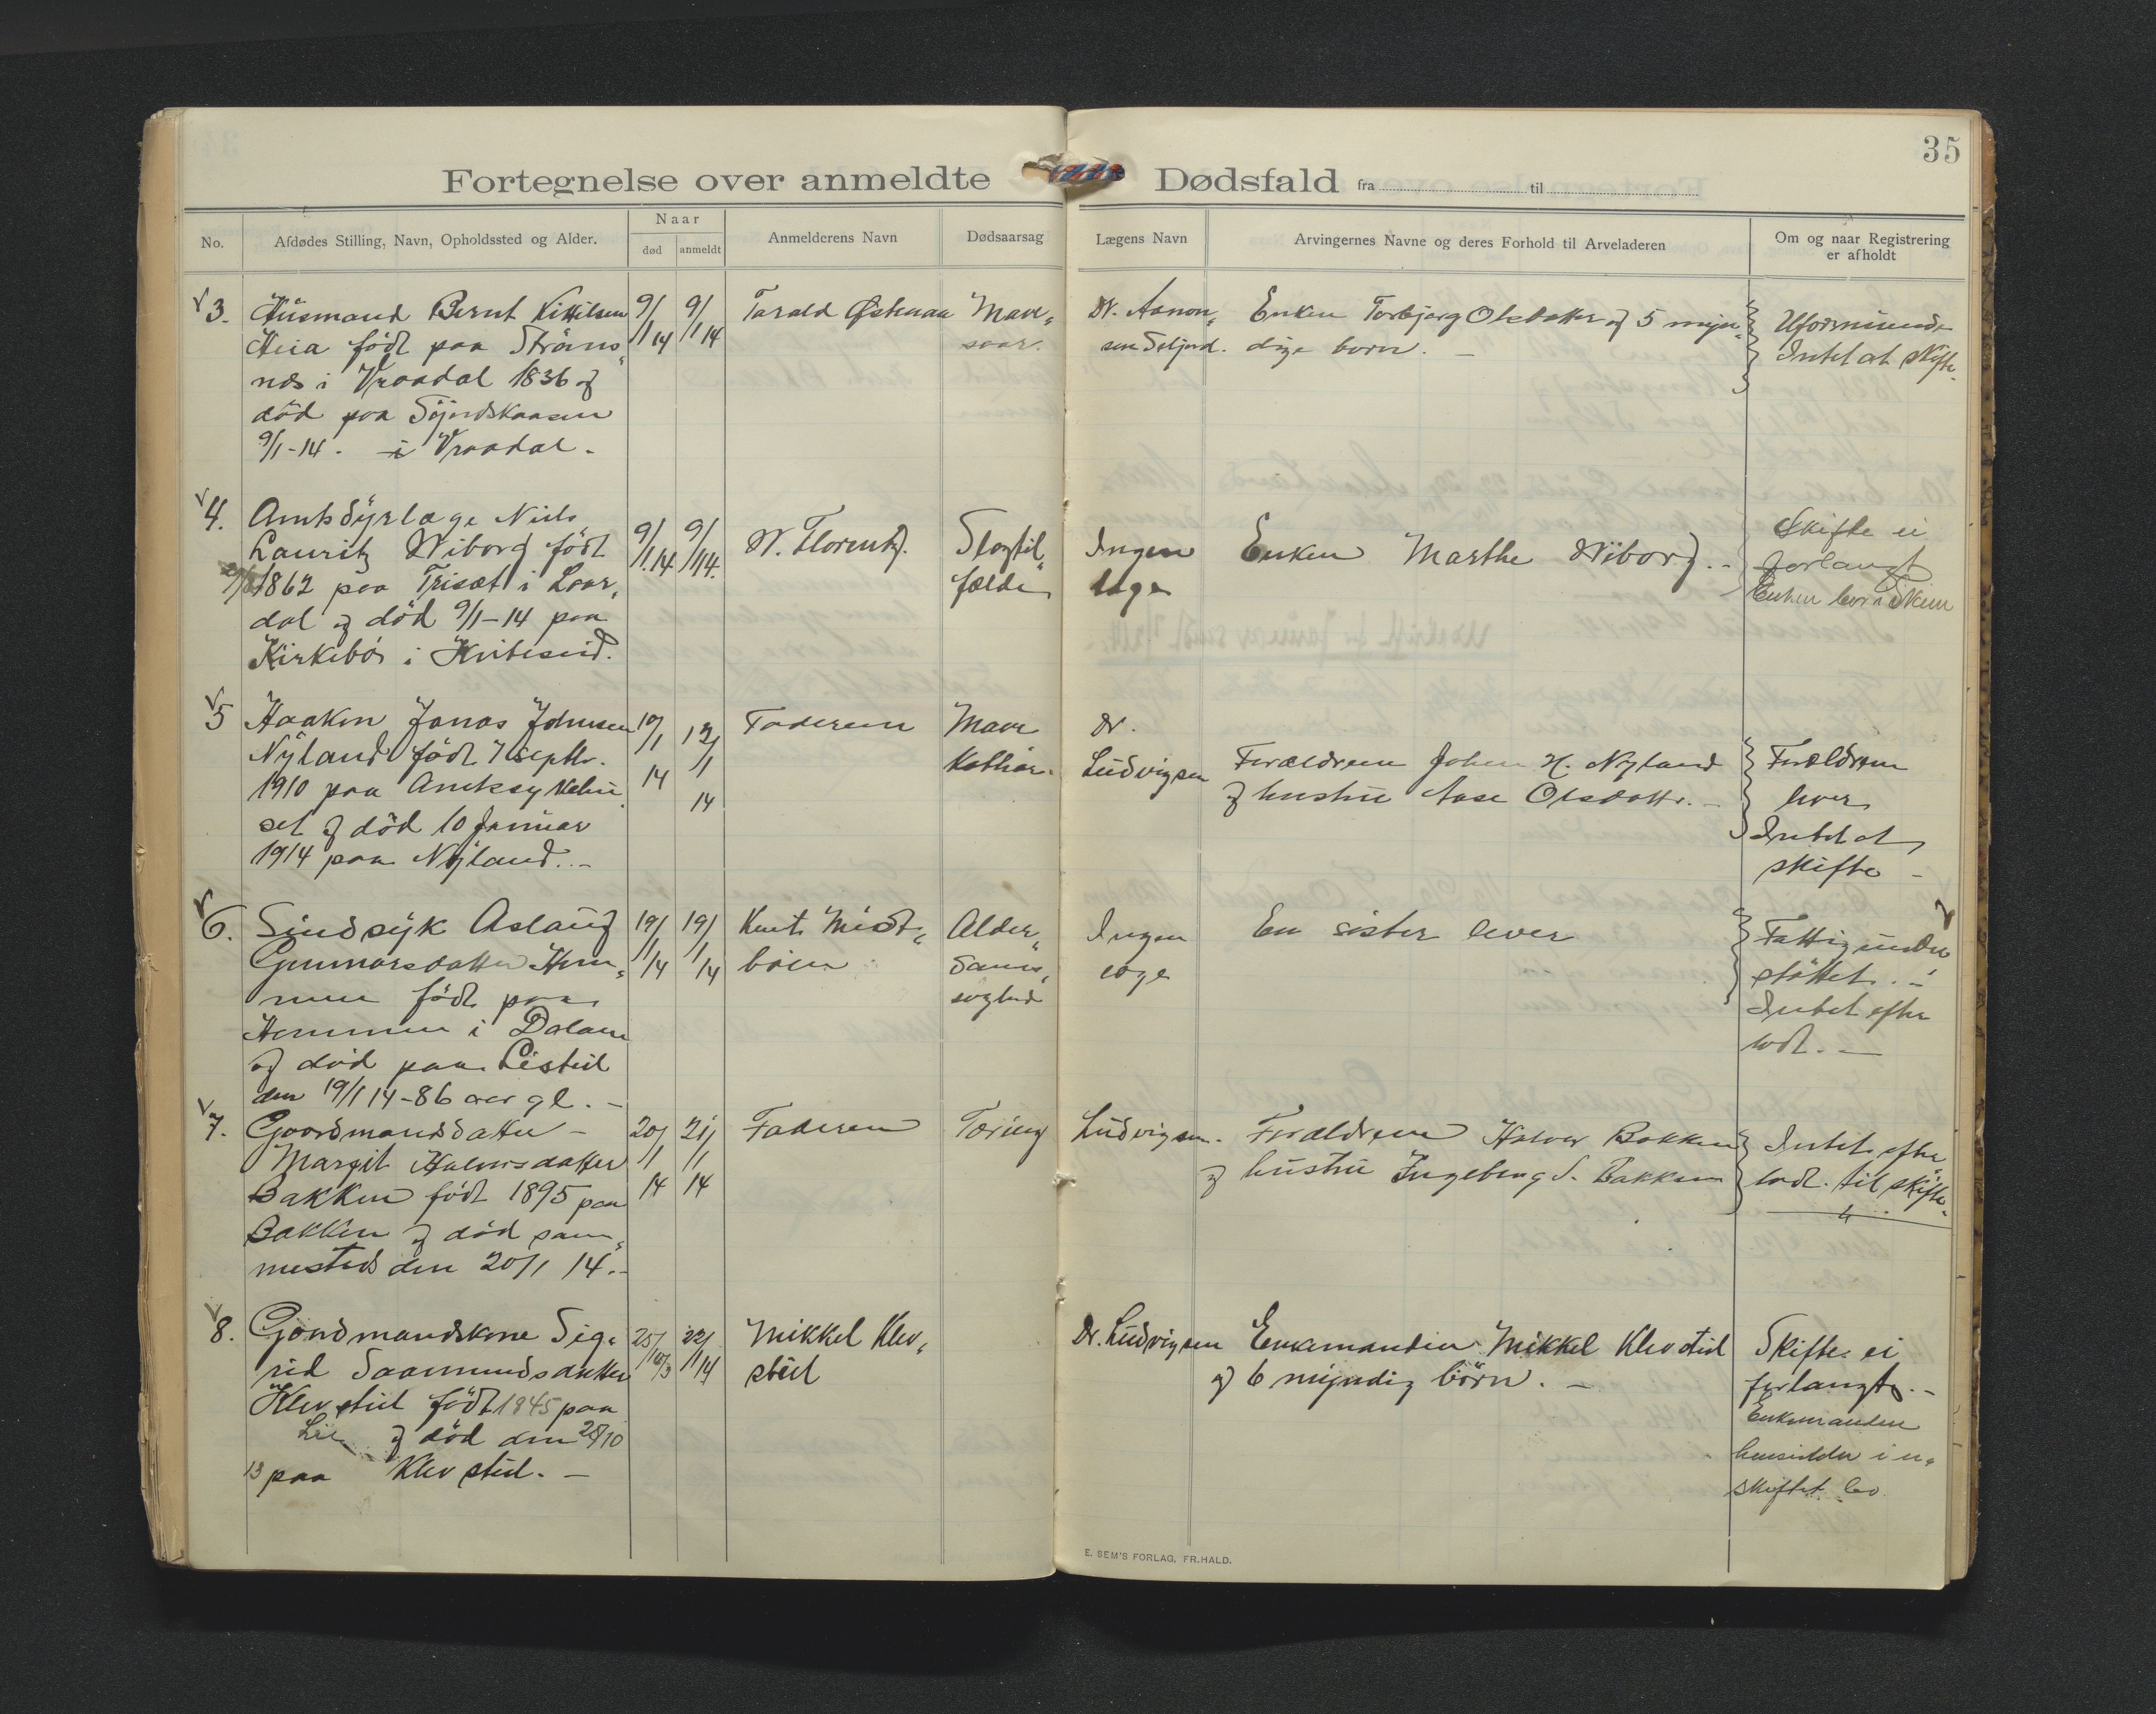 35
Fortegnelse over anmeldte Dødsfald fra til
No.
Afdødes Stilling, Navn, Opholdssted og Alder.
Naar
død
anmeldt
Anmelderens Navn
Dødsaarsag
Lægens Navn
Arvingernes Navne og deres Forhold til Arveladeren
Om og naar Registrering
er afholdt
3.
Husmand Bernt Kittilsen
Heia född paa
i Vraadal 1836 og
död paa
9/1-14. i Vraadal.
9/1 14
9/1 14
Tarald
Mave„
saar.
Dr. Aanon„
sen Seljord.
Enken Torbjørg Olsdatter og 5 myn„
dige born. —
Uformuende
Intet at skifte.
4.
Amtsdyrlæge Niels
Lauritz Wiborg födt
1862 paa Trisæt i Laar„
dal og död 9/1-14 paa
Kirkebö i Kviteseid.
9/1.14
9/1 14.
W. Florentz.
Slagtil„
fælde
Ingen
læge
Enken Marthe Wiborg. -
Skifte ei
forlangt
Enken
5
Haakon Jonas Johnsen
Nyland födt 7 septbr.
1910 paa Amtssykehu„
set og död 10 Januar
1914 paa Nyland. -
10/1 14
12/1 14
Faderen
Mave
Kathar.
Dr.
Ludvigsen
Forældrene John H. Nyland
og hustru Aase Olsdatter. -
Forældrene
lever
Intet at
skifte -
6.
Sindsyk Aslaug
Gunnarsdatter Hem„
men födt paa
Hemmen i Dalane
og död paa Listul
den 19/1 14 - 86 aar gl. -
19/1 14
19/1 14
Knut Midt„
böen
Alder„
doms„
svaghed
Ingen
læge
En söster lever
Fattigunder
stöttet. -
Intet efter
ladt. —
7.
Gaardmandsdatter -
Margit Halvorsdatter
Bakken födt 1895 paa
Bakken og död sam„
mesteds den 20/1 14. -
20/1 14
21/1 14
Faderen
Tæring
Ludvigsen.
Forældrene Halvor Bakken
og hustru Ingeborg S. Bakken
Intet efter„
ladt til skifte.
8.
Gardmandskone Sig„
rid Saamundsdatter
Klevstul födt 1845 paa
Lie og död den 25/10
13 paa Klevstul. —
25/10 13
22/1 14
Mikkel Klev„
stul
Dr. Ludvigsen
Enkemanden Mikkel Klevstul
og 6 myndig börn. —
Skifte ei
forlangt. -
Enkemanden
hensidder i u„
skiftet bo
E. SEM'S FORLAG, FR.HALD.